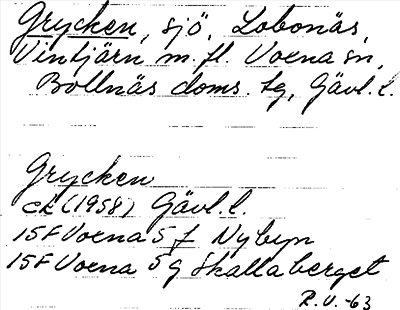 Grycken, sjö, Lobonäs,
Vintjärn m. fl. Voxna sn,
Bollnäs doms. tg, Gävl. l.
Grycken
ek (1958) Gävl. l.
15F Voxna 5 f Nybyn
15F Voxna 5 g Skallaberget
R.V. -63